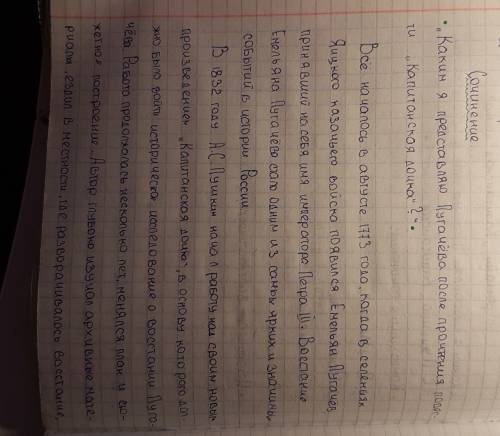 Сочинение
„Каким я представляю Пугачёва после прочтения повес-
ти „Капитанская дочка"?"
Всё началось в августе 1773 года, когда в селениях
Яицкого казацкого войска появился Емельян Пугачёв,
принявший на себя имя императора Петра III. Восстание
Емельяна Пугачёва стало одним из самых ярких и значимых
событий в истории России.
В 1832 году А.С. Пушкин начал работу над своим новым
произведением „Капитанская дочка", в основу которого дол-
жно было войти историческое исследование о восстании Пуга-
чёва. Работа продолжалась несколько лет, менялся план и сю-
жетное построение. Автор глубоко изучал архивные мате-
риалы, ездил в местности, где разворачивалось восстание,